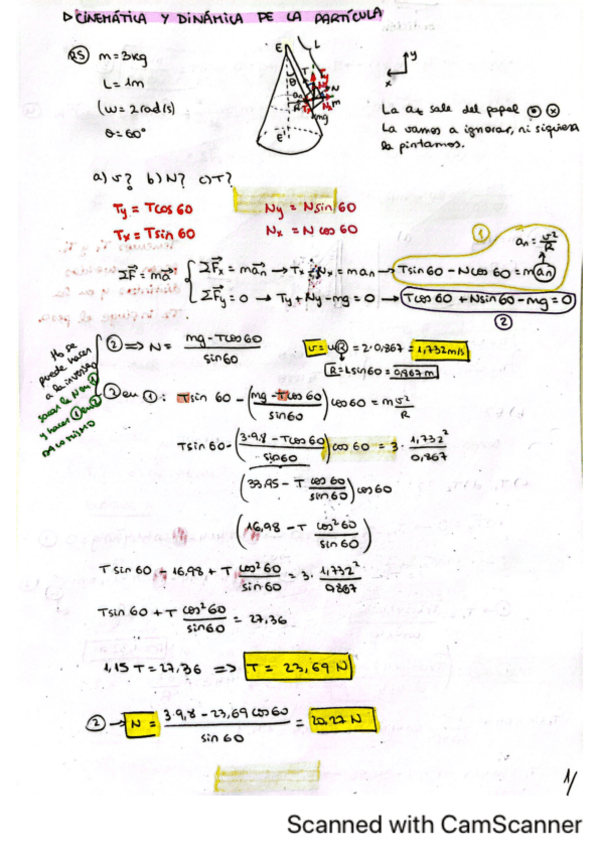 ▷ CINEMÁTICA Y DINÁMICA DE LA PARTÍCULA
m = 3kg
L = 1m
(ω = 2 rad/s)
θ = 60°
E
L
θ
T
N
an
m
mg
E'
y
x
La at sale del papel ⊙ ⊗
La vamos a ignorar, ni siquiera
la pintamos.
a) v? b) N? c) T?
Ty = Tcos 60 Ny = Nsin 60
Tx = Tsin 60 Nx = N cos 60
① an = v²/R
ΣF⃗ = ma⃗ { ΣF⃗x = ma⃗n → Tx - Nx = man → Tsin 60 - Ncos 60 = m an
ΣF⃗y = 0 → Ty + Ny - mg = 0 → Tcos 60 + Nsin 60 - mg = 0
②
② ⇒ N = (mg - Tcos 60)/sin 60
v = ωR = 2·0,867 = 1,732 m/s
R = Lsin 60 = 0,867 m
puede hacer
a la inversa
sacar la N en ①
y hacer ① en ②
DA LO MISMO
② en ①: Tsin 60 - ((mg - Tcos 60)/sin 60) cos 60 = m v²/R
Tsin 60 - ((3·9,8 - Tcos 60)/sin 60) cos 60 = 3 · 1,732²/0,867
(33,95 - T cos 60/sin 60) cos 60
(16,98 - T cos² 60/sin 60)
T sin 60 - 16,98 + T cos² 60/sin 60 = 3 · 1,732²/0,867
Tsin 60 + T cos² 60/sin 60 = 27,36
1,15 T = 27,36 ⇒ T = 23,69 N
② → N = (3·9,8 - 23,69 cos 60)/sin 60 = 20,27 N
1/
Scanned with CamScanner